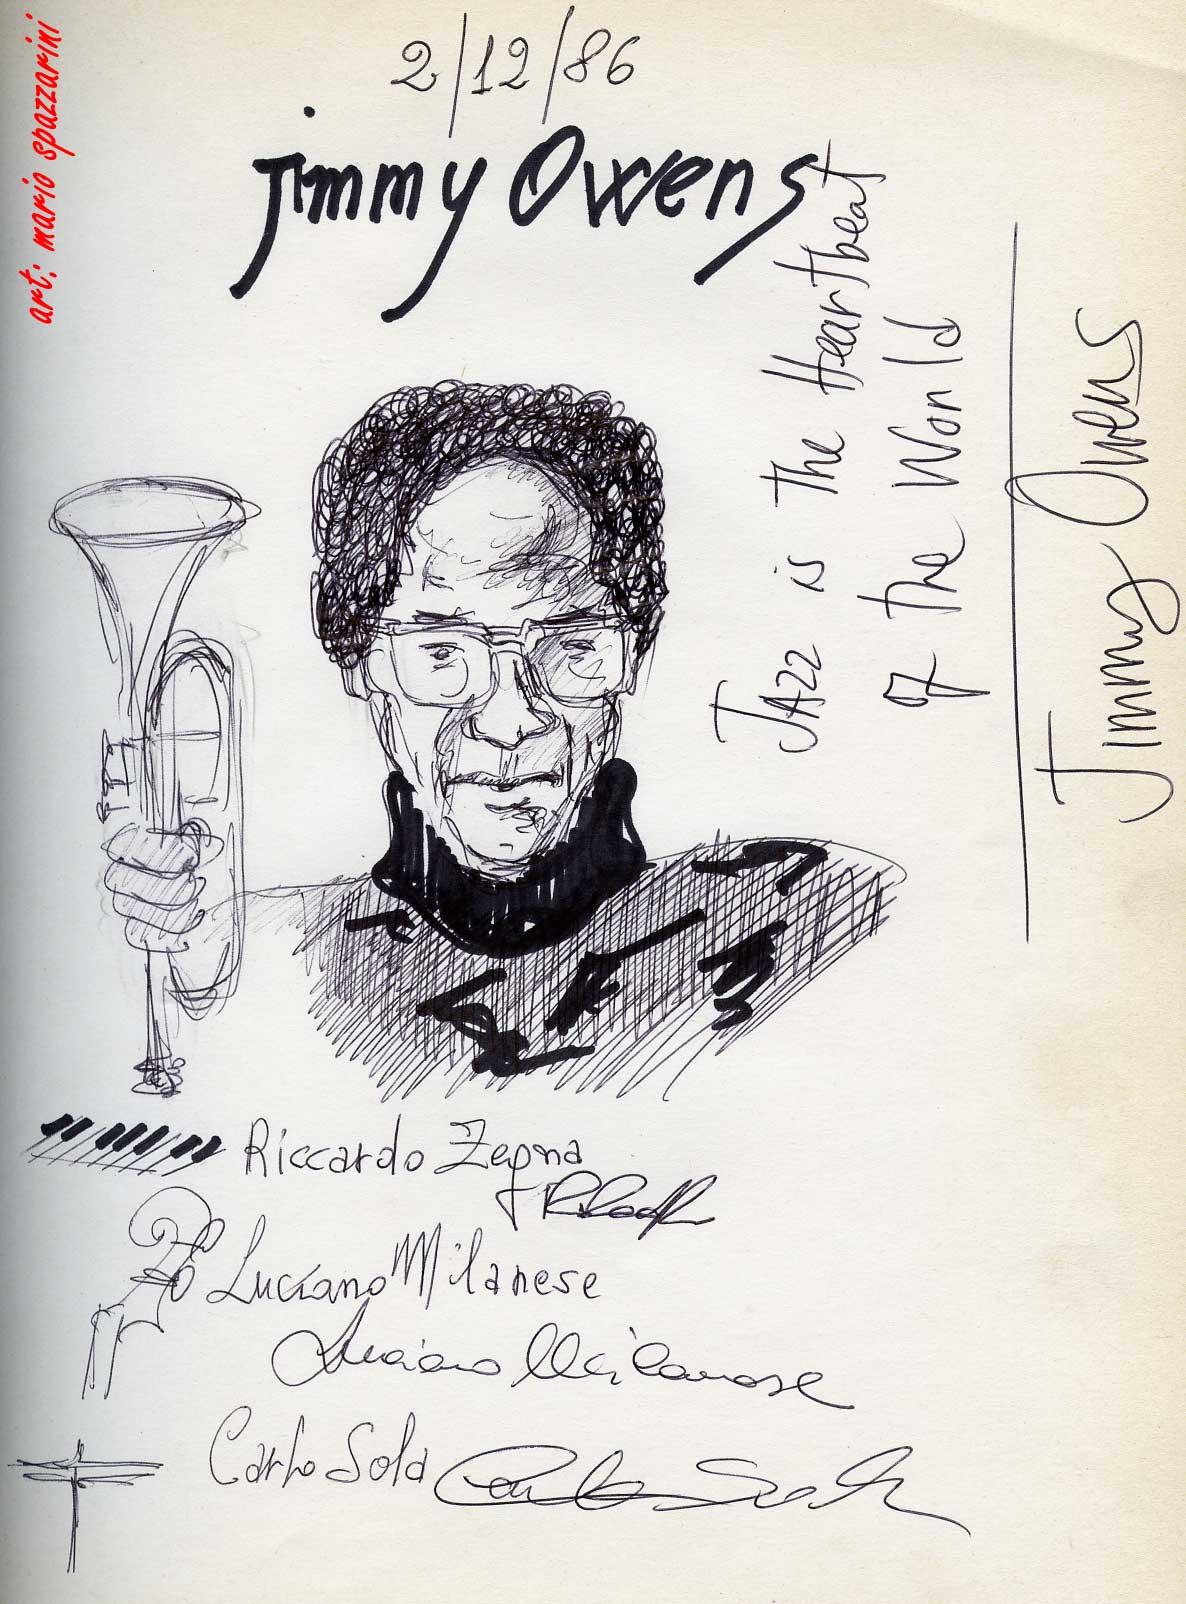 art: mario spazzarini
2/12/86
Jimmy Owens
Jazz is The Heartbeat
of The World
Jimmy Owens
Riccardo Zegna
Luciano Milanese
Luciano Milanese
Carlo Sola
Carlo Sola